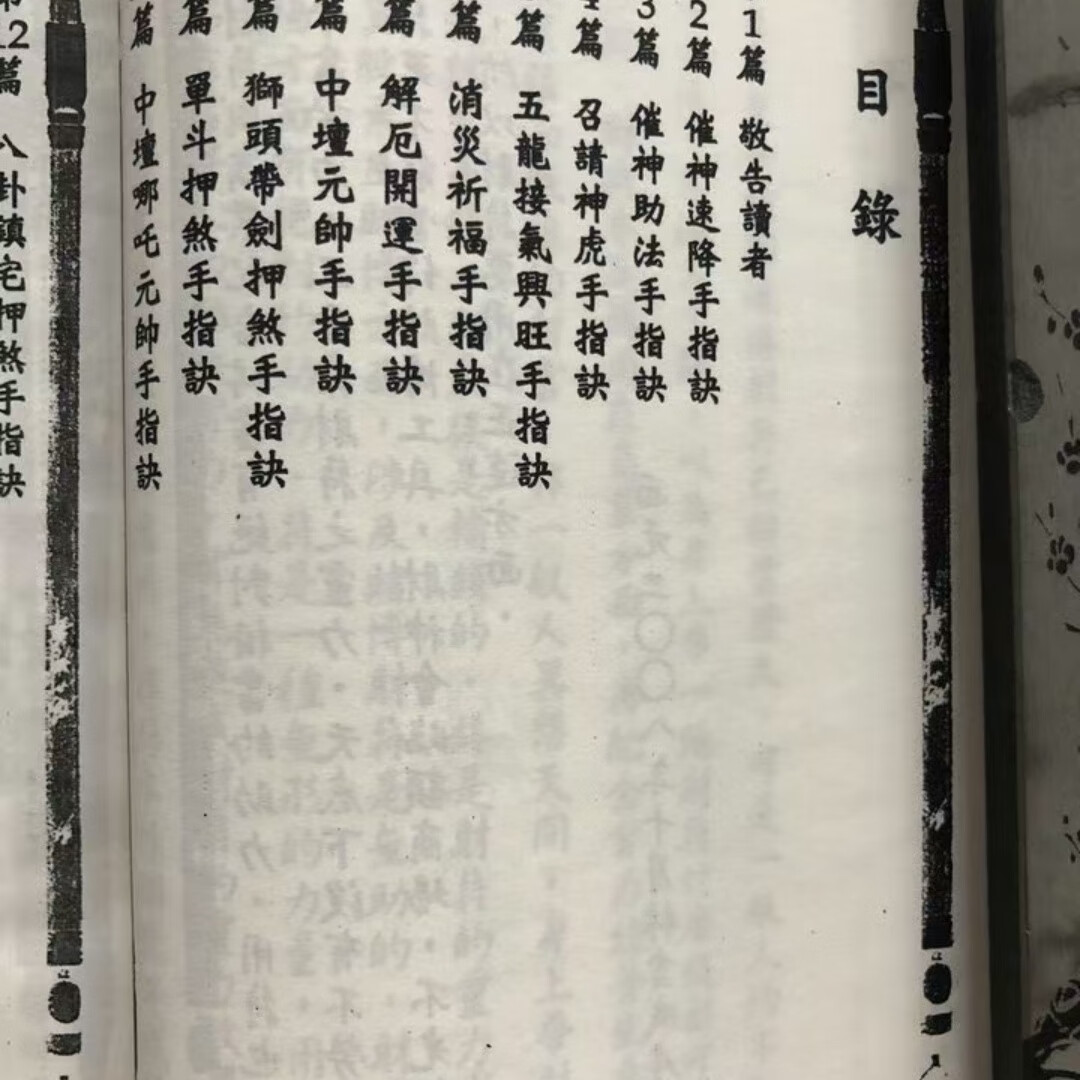 目錄
1篇 敬告讀者
2篇 催神速降手指訣
3篇 催神助法手指訣
篇 召請神虎手指訣
篇 五龍接氣興旺手指訣
篇 消災祈福手指訣
篇 解厄開運手指訣
篇 中壇元帥手指訣
篇 獅頭帶劍押煞手指訣
篇 單斗押煞手指訣
篇 中壇哪吒元帥手指訣
12篇 八卦鎮宅押煞手指訣